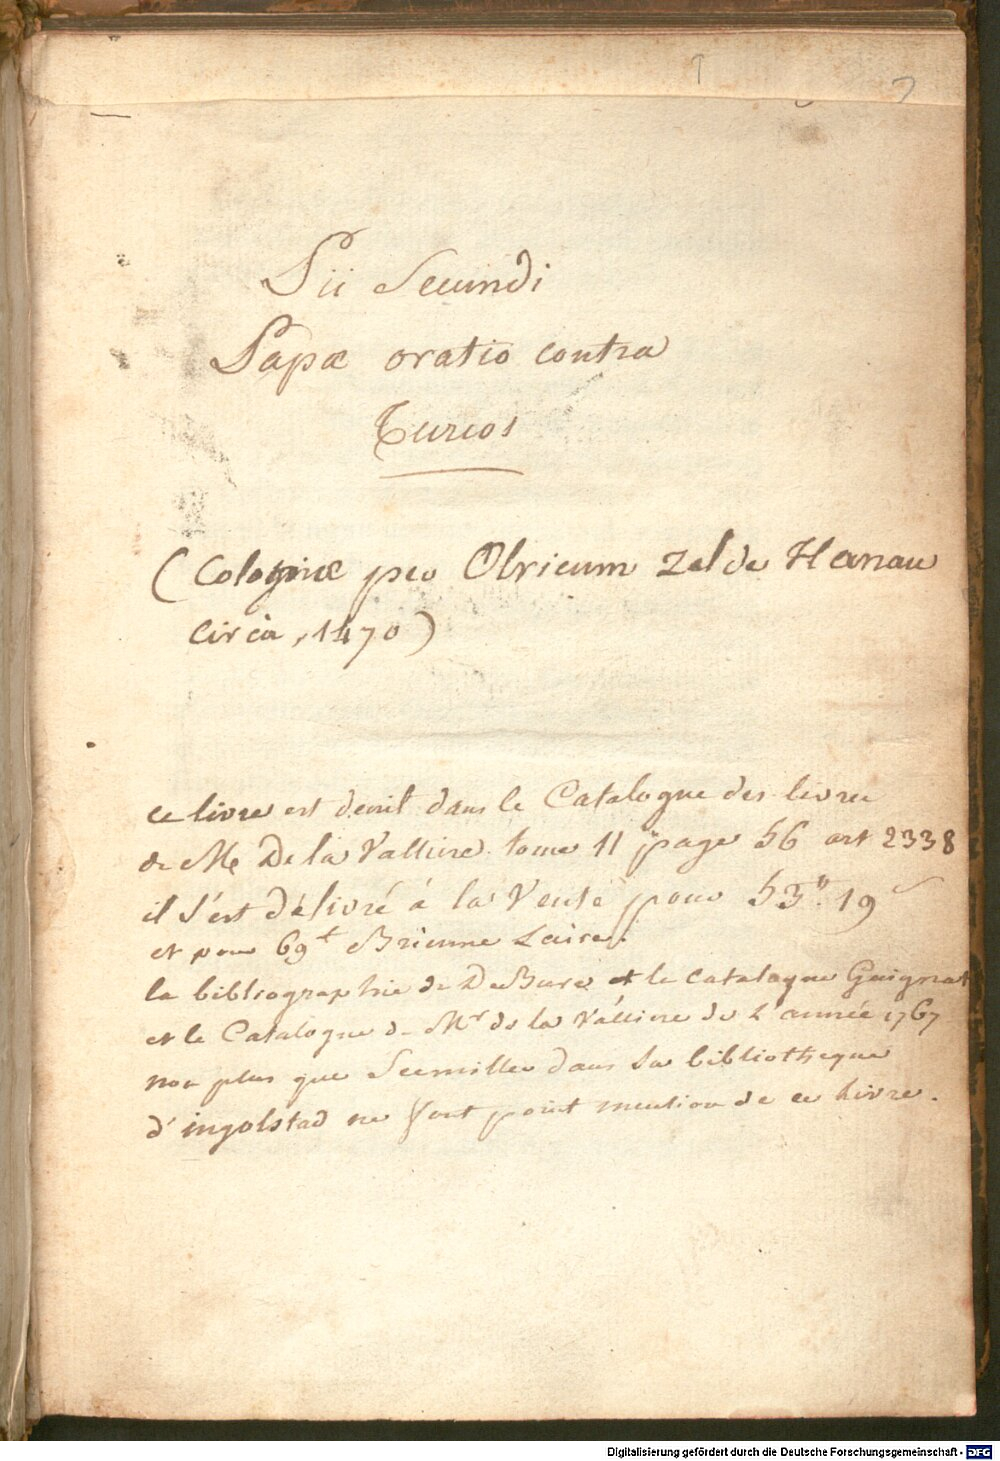 Pii Secundi
Papæ oratio contra
Turcos
(Coloniæ per Olricum Zel de Hanau
Circà, 1470)
ce livre est decrit dans le Catalogue des livres
de Mr De la Valliere tome 11 page 56 art 2338
il s'est délivré á la Vente pour 53.tt 19 s
et pour 69 tt Brienne Laire.
la bibliographie de DeBure et le catalogue Gaignat
et le Catalogue de Mr de la Válliere de L'année 1767
non plus que Seemiller dans sa bibliotheque
d'ingolstad ne font point mention de ce livre.
Digitalisierung gefördert durch die Deutsche Forschungsgemeinschaft - DFG